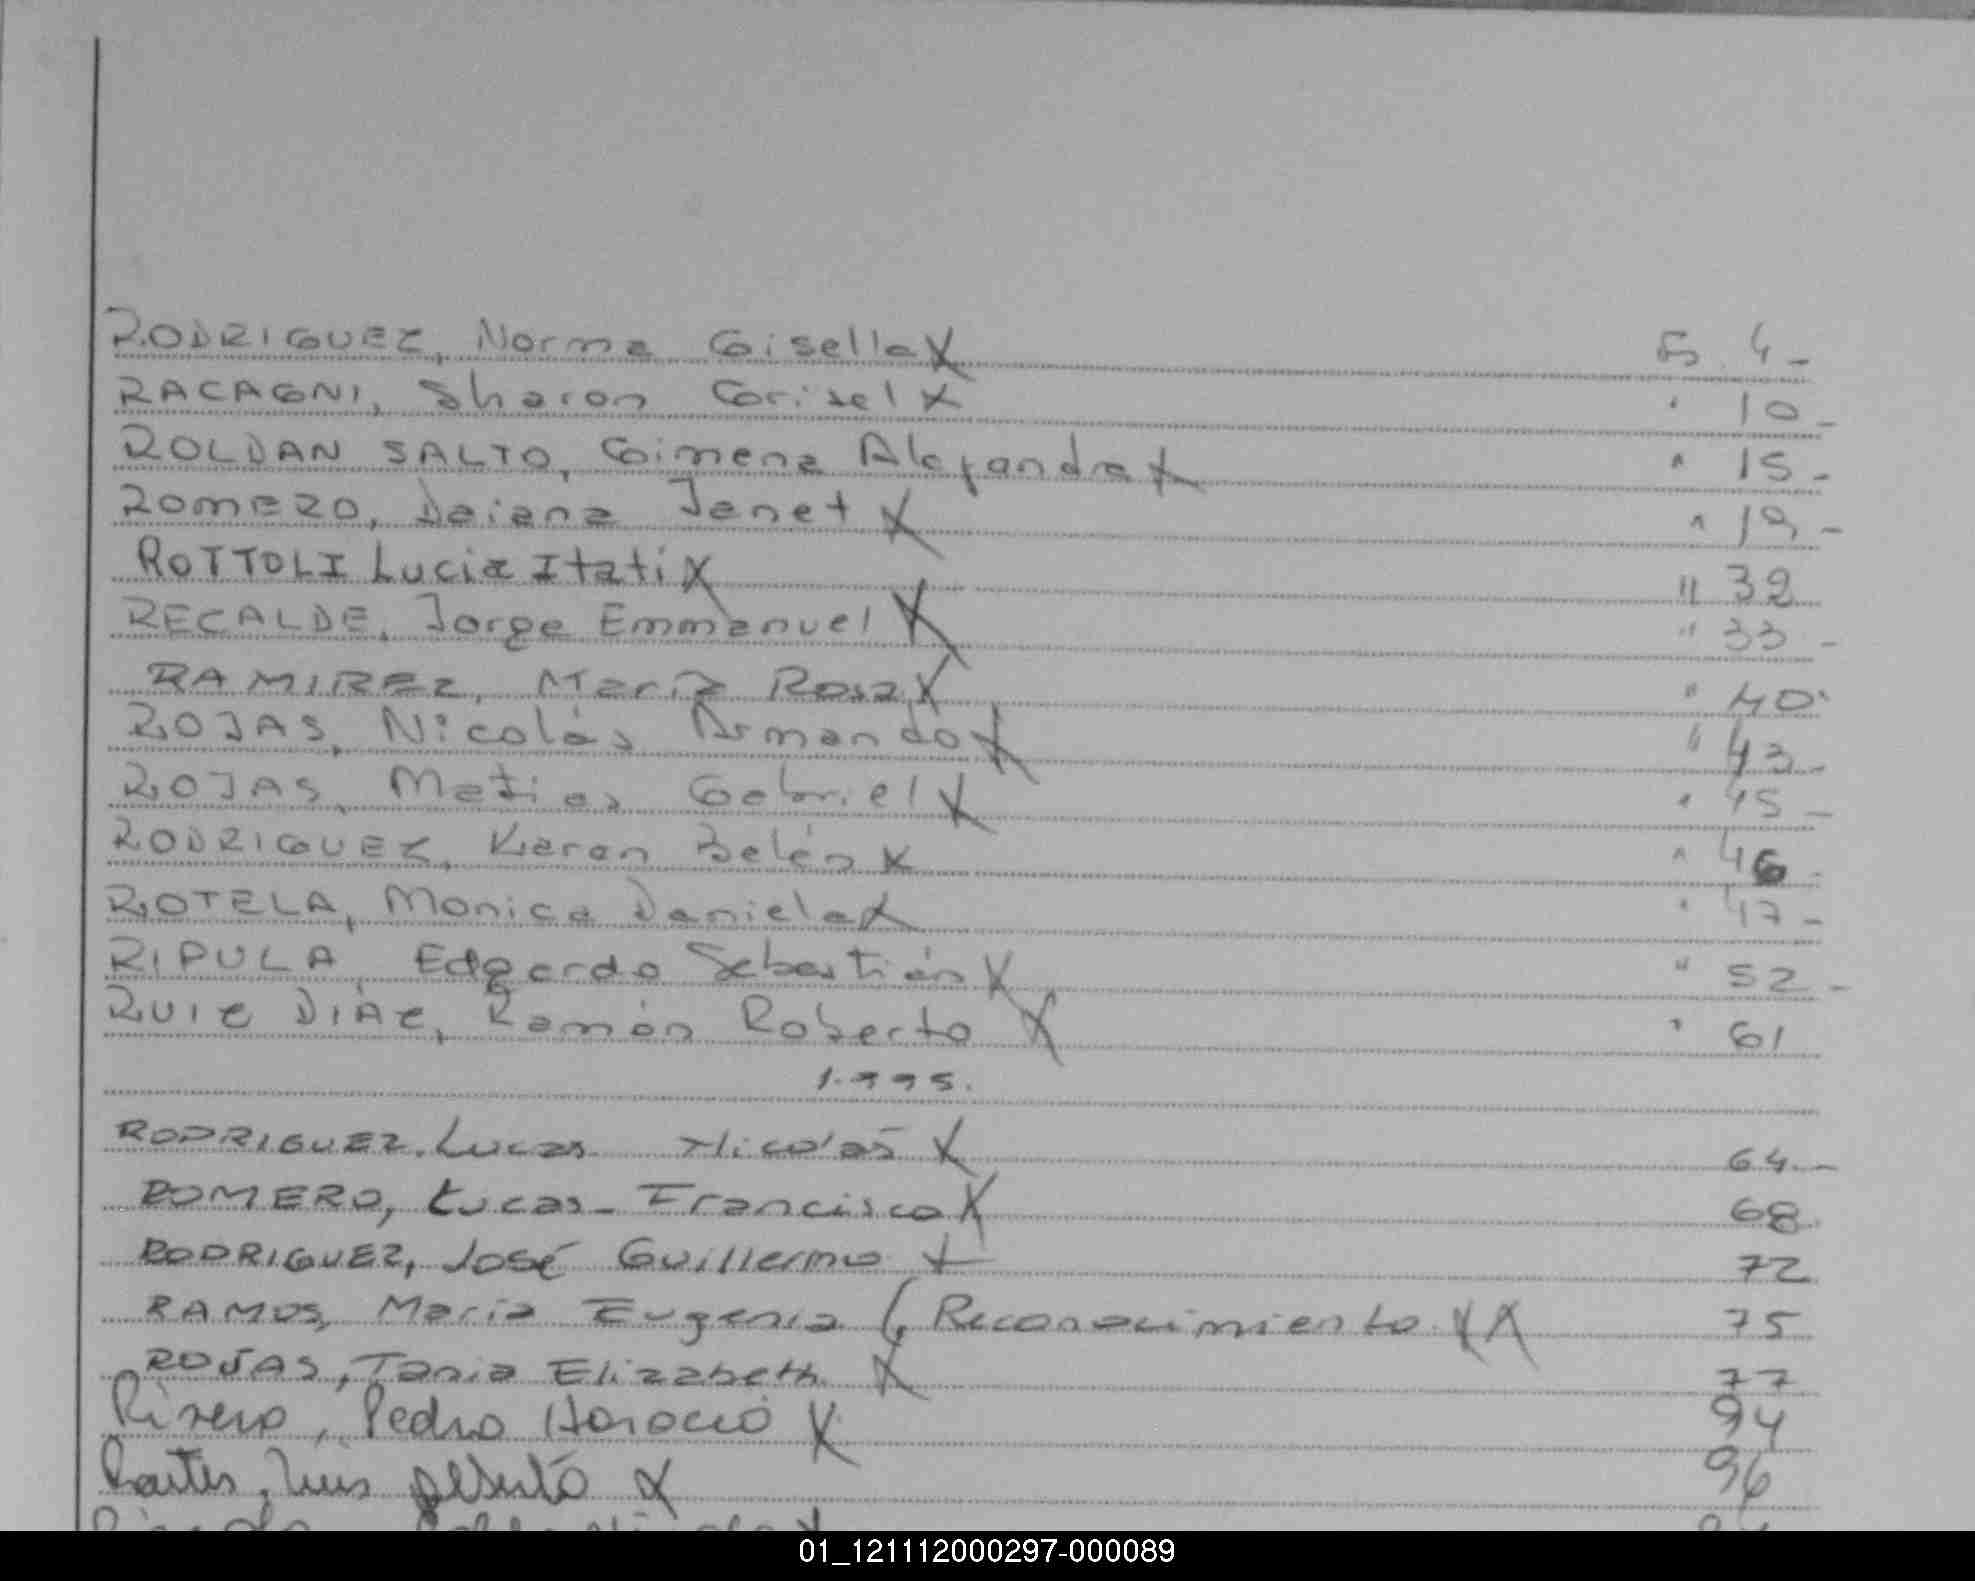 RODRIGUEZ, Norma Gisella X Fs. 4 -
RACAGNI, Sharon Grisel X " 10 -
ROLDAN SALTO, Gimena Alejandra X " 15 -
ROMERO, Daiana Janet X " 19 -
ROTTOLI Lucia Itati X " 32
RECALDE, Jorge Emmanuel X " 33 -
RAMIREZ, María Rosa X " 40
ROJAS, Nicolás Armando X " 43 -
ROJAS, Matias Gabriel X " 45 -
RODRIGUEZ, Karen Belén X " 46 -
ROTELA, Monica Daniela X " 47 -
RIPULA, Edgardo Sebastián X " 52 -
RUIZ DIAZ, Ramón Roberto X " 61
1.995.
RODRIGUEZ, Lucas Nicolás X 64 -
ROMERO, Lucas Francisco X 68
RODRIGUEZ, José Guillermo X 72
RAMOS, María Eugenia (Reconocimiento X X 75
ROJAS, Tania Elizabeth X 77
Rivero, Pedro Horacio X 94
Luis Alberto X 96
01_121112000297-000089